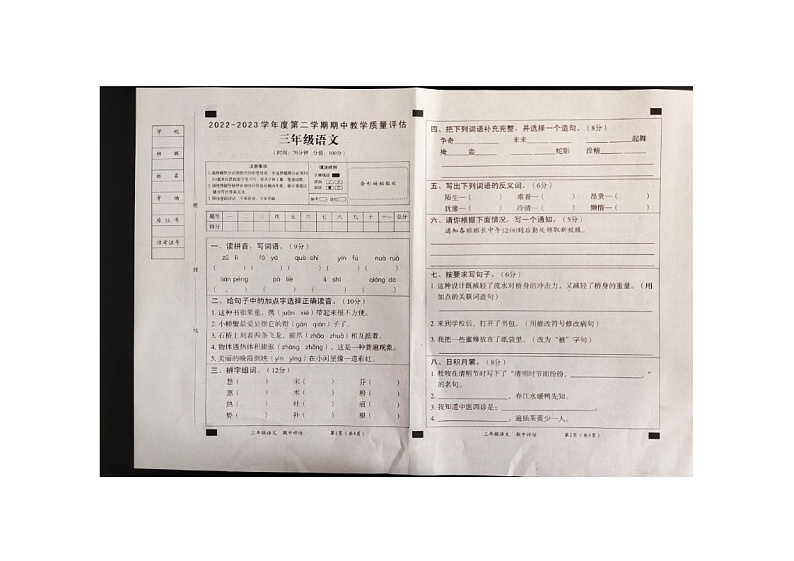 学 校
班 级
姓 名
考 场
座 位 号
准考证号
密
封
线
2022-2023学年度第二学期期中教学质量评估
三年级语文
（时间：70分钟 分值：100分）
注意事项
填涂样例
条形码粘贴处
题号 一 二 三 四 五 六 七 八 九 十 十一 总分
得分
一、读拼音，写词语。（9分）
zǔ lì fǎ yá què shí yín fú nuò ruò
（ ）（ ）（ ）（ ）（ ）
lián péng pái liè shī diū
（ ）（ ）（ ）（ ）
二、给句子中的加点字选择正确读音。（10分）
1. 这种书很笨重，携（juān xié）带起来很不方便。
2. 小螃蟹最爱用螯它的钳（gān qián）子了。
3. 石桥上刻着两条飞龙，前爪（zhǎo zhuǎ）相互抵着。
4. 物体遇热体积膨胀（zhàng zhǎng），这是一种普遍现象。
5. 美丽的晚霞倒映（yìn yìng）在小河里像一道彩虹。
三、辨字组词。（12分）
愁（ ） 宋（ ） 芬（ ）
惹（ ） 术（ ） 粉（ ）
热（ ） 杜（ ） 痕（ ）
势（ ） 补（ ） 根（ ）
三年级语文 期中评估 第1页（共4页）
四、把下列词语补充完整，并选择一个造句。（8分）
争奇____ 来来____ ____起舞
掩__盗__ ____蛇影 没精____
五、写出下列词语的反义词。（6分）
陌生—（ ） 难看—（ ） 昂贵—（ ）
犹豫—（ ） 冷清—（ ） 懒惰—（ ）
六、请你根据下面情况，写一个通知。（5分）
通知各班班长中午12:00到后勤处领取新校服。
七、按要求写句子。（6分）
1. 这种设计既减轻了流水对桥身的冲击力，又减轻了桥身的重量。（用
加点的关联词造句）
2. 来到学校后，打开了书包。（用修改符号修改病句）
3. 我把一些蜜蜂放在了纸袋里。（改为“被”字句）
八、日积月累。（8分）
1. 杜牧在清明节时写下了“清明时节雨纷纷，____。”
的名句。
2. ____，春江水暖鸭先知。
3. 我知道中医四诊是：____。
4. ____，遍插茱萸少一人。
三年级语文 期中评估 第2页（共4页）